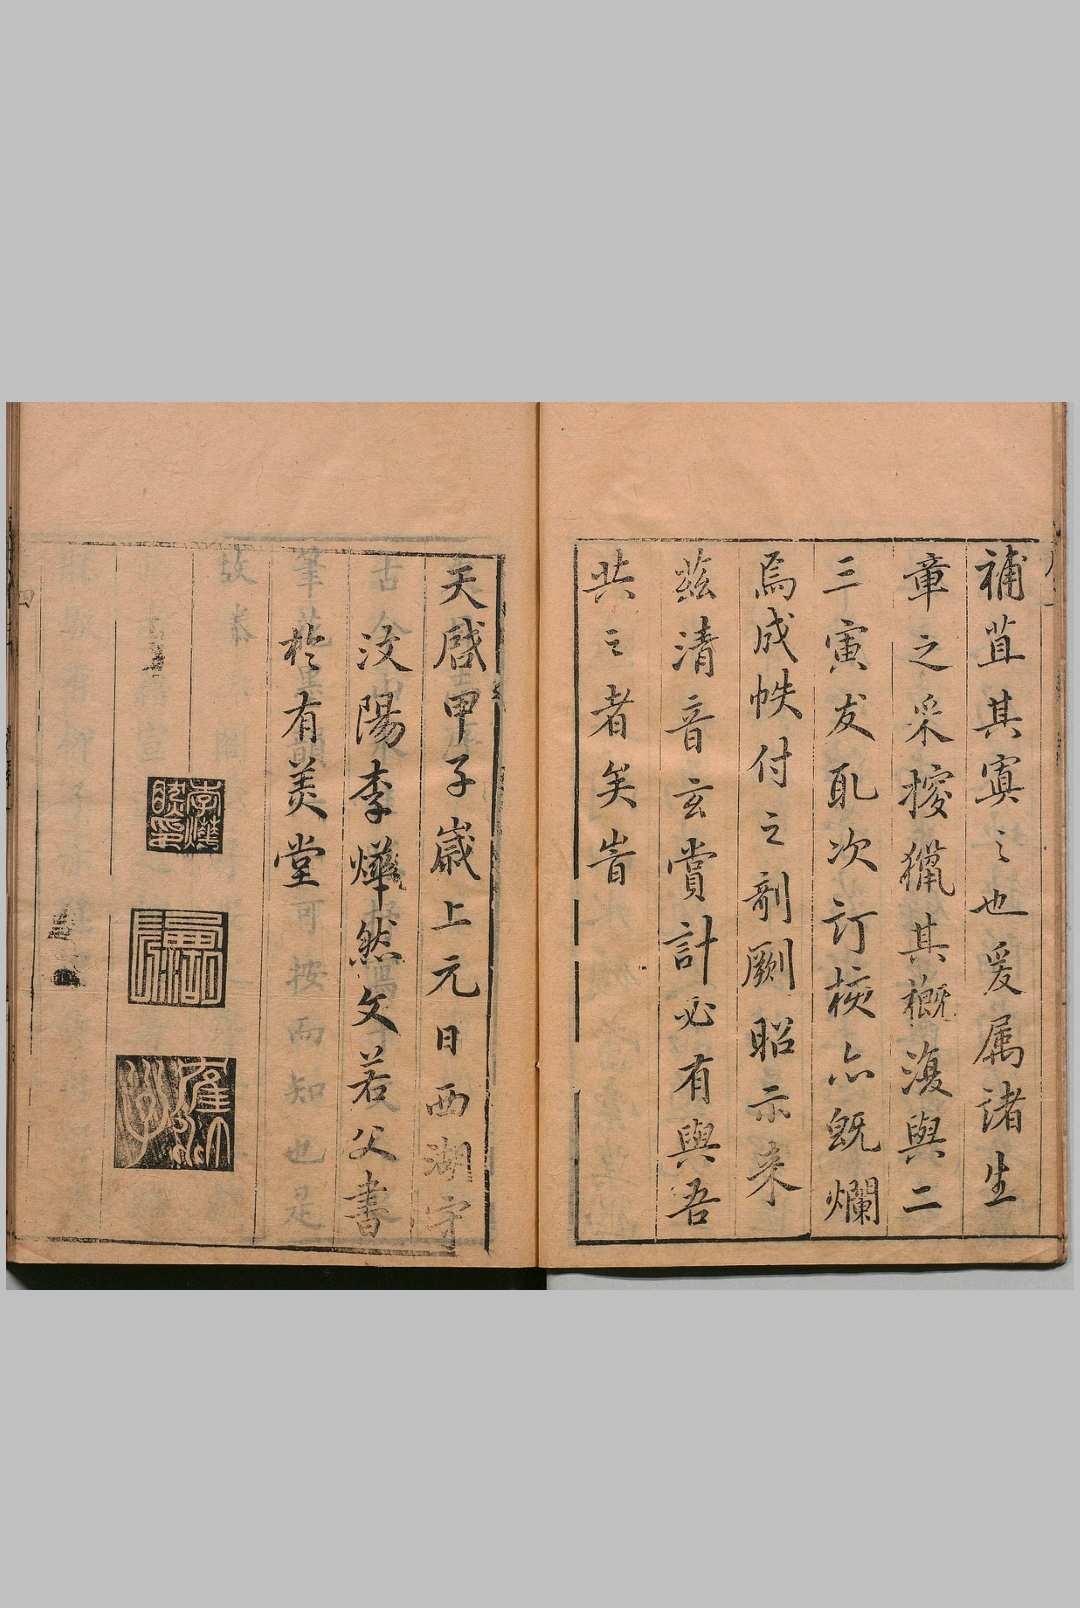 補苴其寞之也爰属諸生
章之采㨰獵其概復與二
三寅友瓦次訂核亦既爛
焉成帙付之剞劂昭示来
茲清音玄賞計必有與吾
共之者矣旹
天啓甲子嵗上元日西湖守
汶陽李燁然文若父書
於有美堂
李燁然印